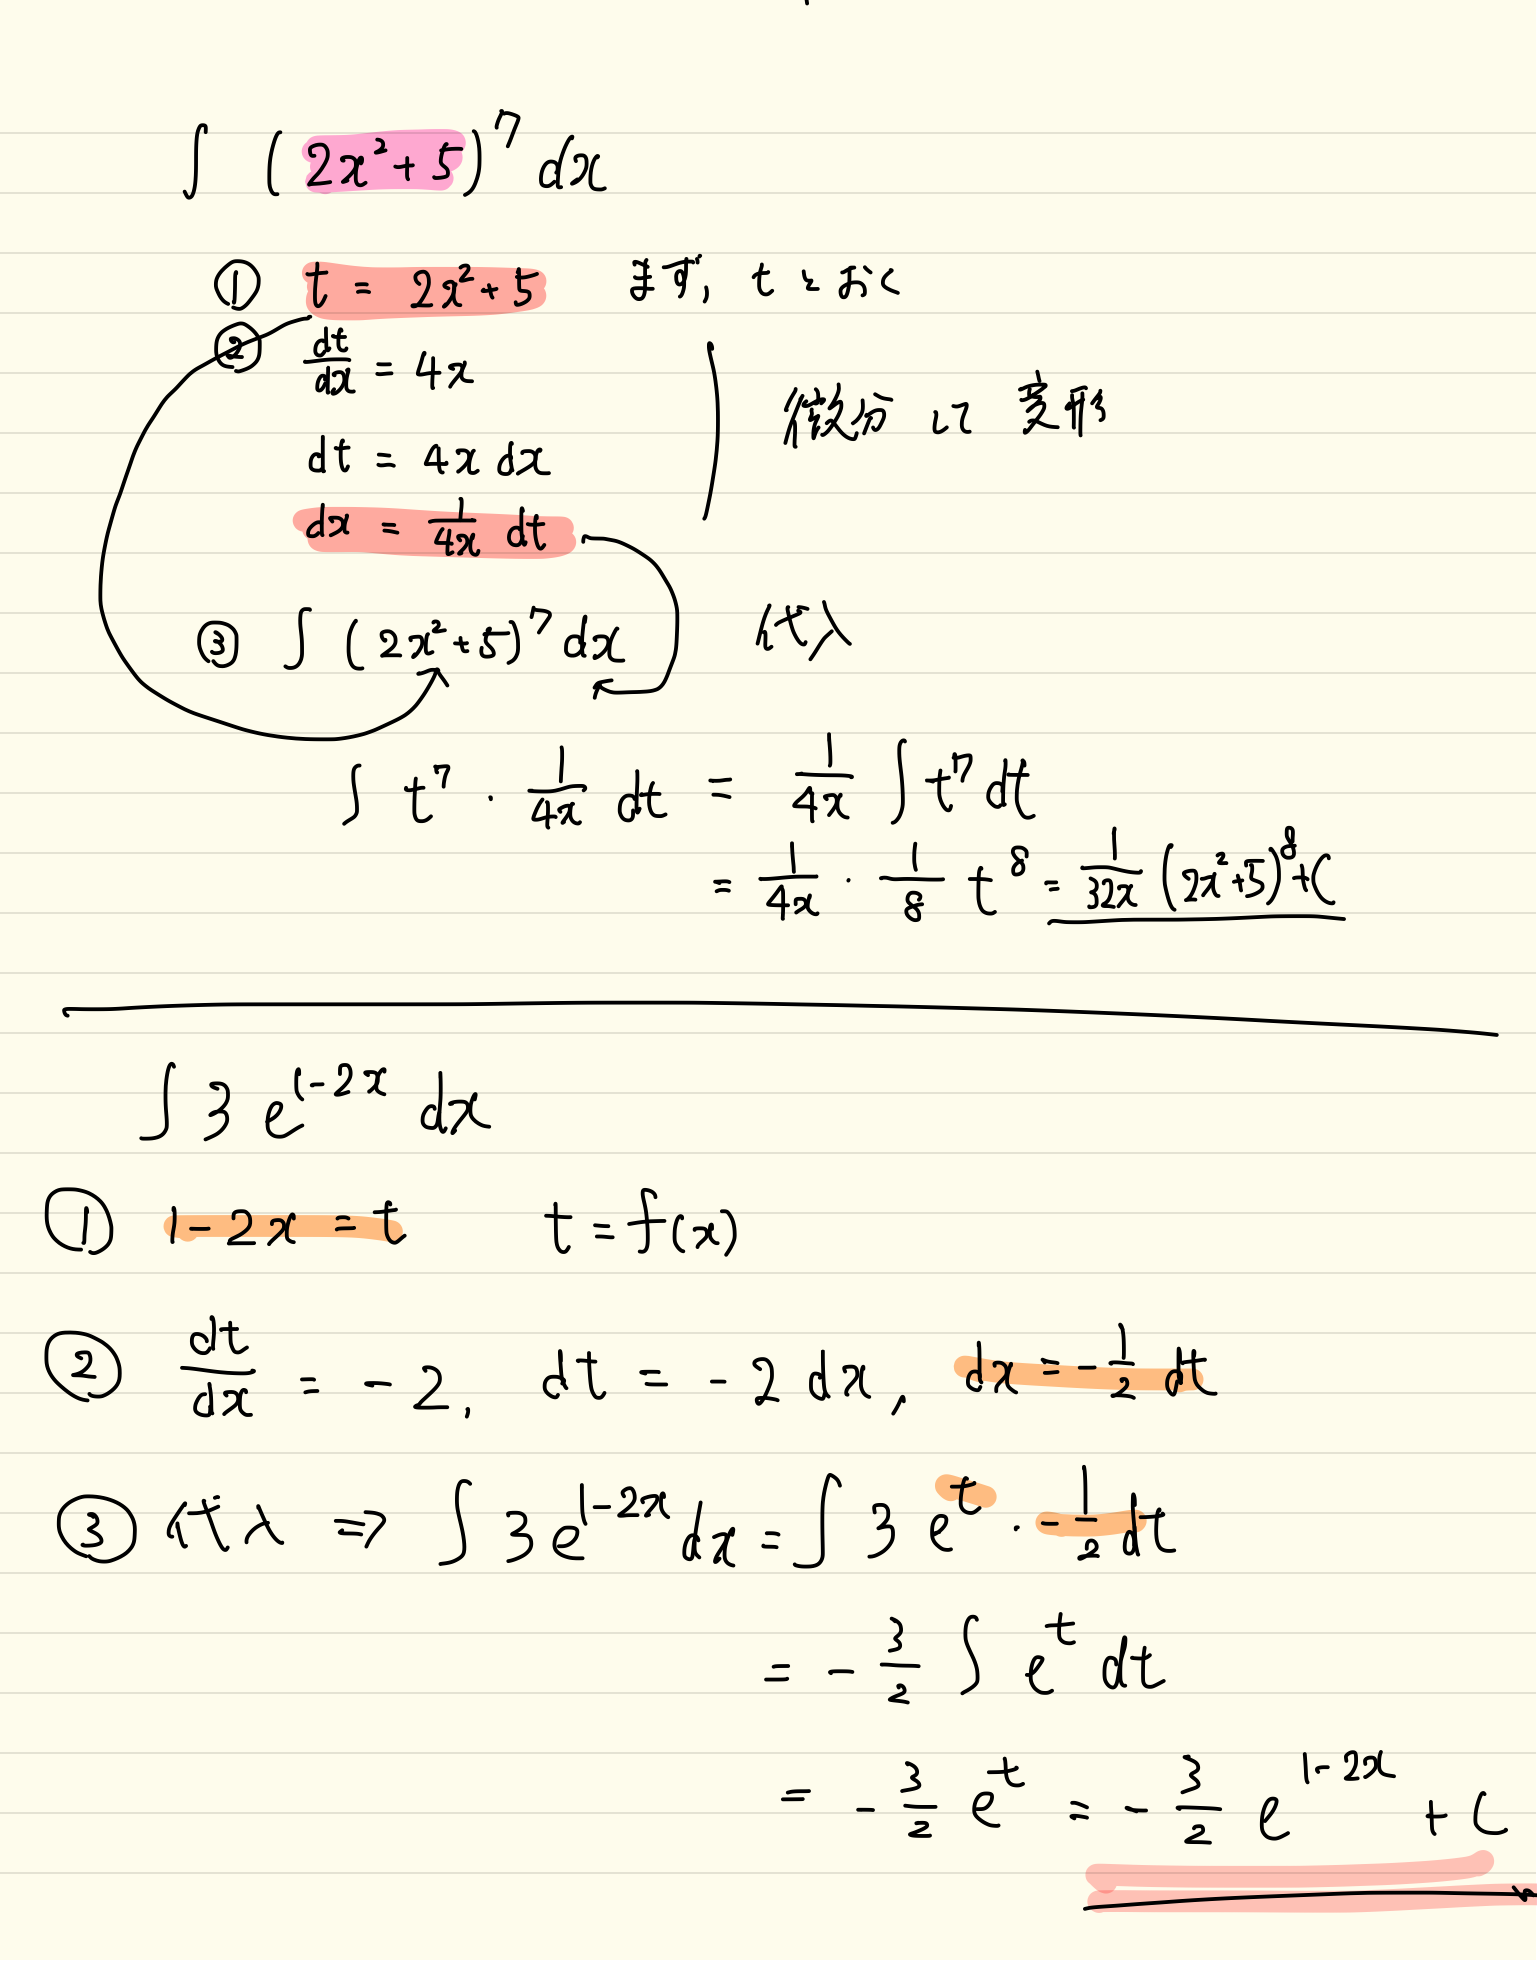 ∫ (2x²+5)⁷ dx
① t = 2x²+5 まず, t とおく
② dt/dx = 4x
微分して変形
dt = 4x dx
dx = 1/4x dt
③ ∫ (2x²+5)⁷ dx 代入
∫ t⁷ · 1/4x dt = 1/4x ∫ t⁷ dt
= 1/4x · 1/8 t⁸ = 1/32x (2x²+5)⁸+C
∫ 3 e^{1-2x} dx
① 1-2x = t t = f(x)
② dt/dx = -2, dt = -2 dx, dx = -1/2 dt
③ 代入 ⇒ ∫ 3 e^{1-2x} dx = ∫ 3 e^t · -1/2 dt
= - 3/2 ∫ e^t dt
= - 3/2 e^t = - 3/2 e^{1-2x} + C